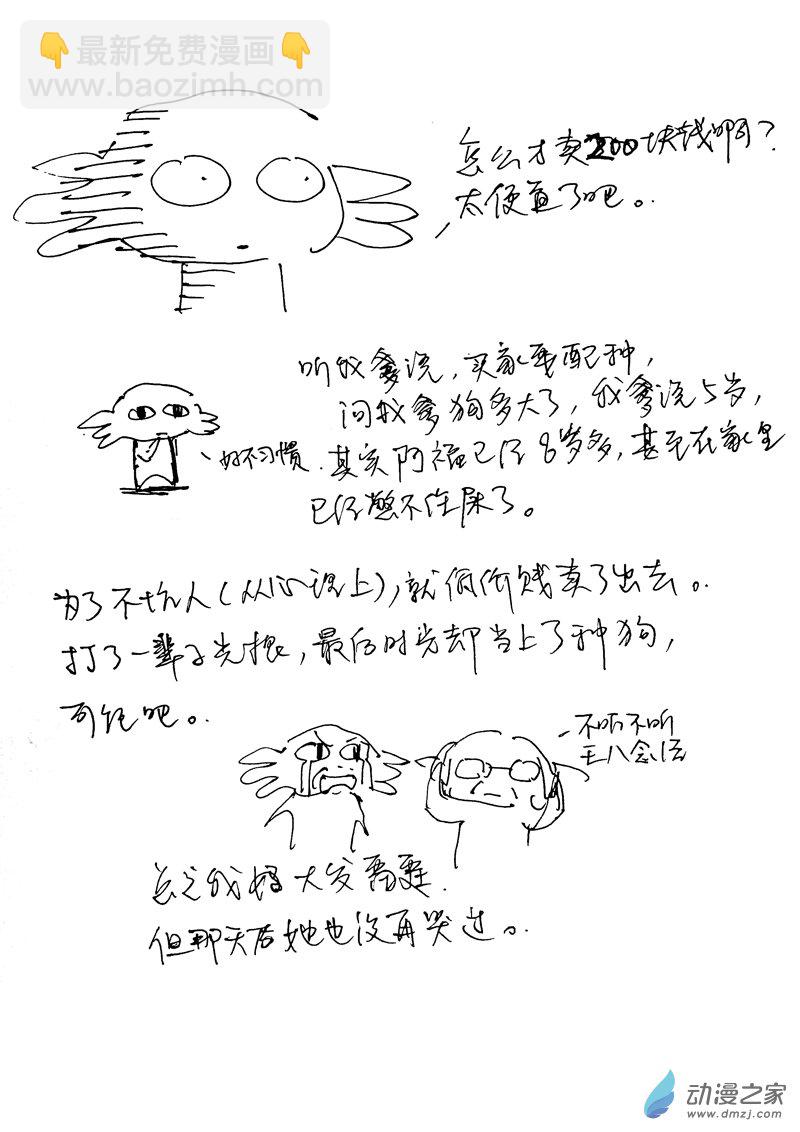 👇最新免费漫画👇
www.baozimh.com
怎么才卖200块钱啊?
太便宜了吧。
听我爹说,买家要配种,
问我爹狗多大了,我爹说5岁,
好不习惯
其实阿福已经8岁多,甚至在家里
已经憋不住尿了。
为了不坑人(从心理上),就低价贱卖了出去。
打了一辈子光棍,最后时光却当上了种狗,
可能吧。
不听不听
王八念经
总之我妈大发雷霆.
但那天后她也没再哭过。
动漫之家
www.dmzj.com